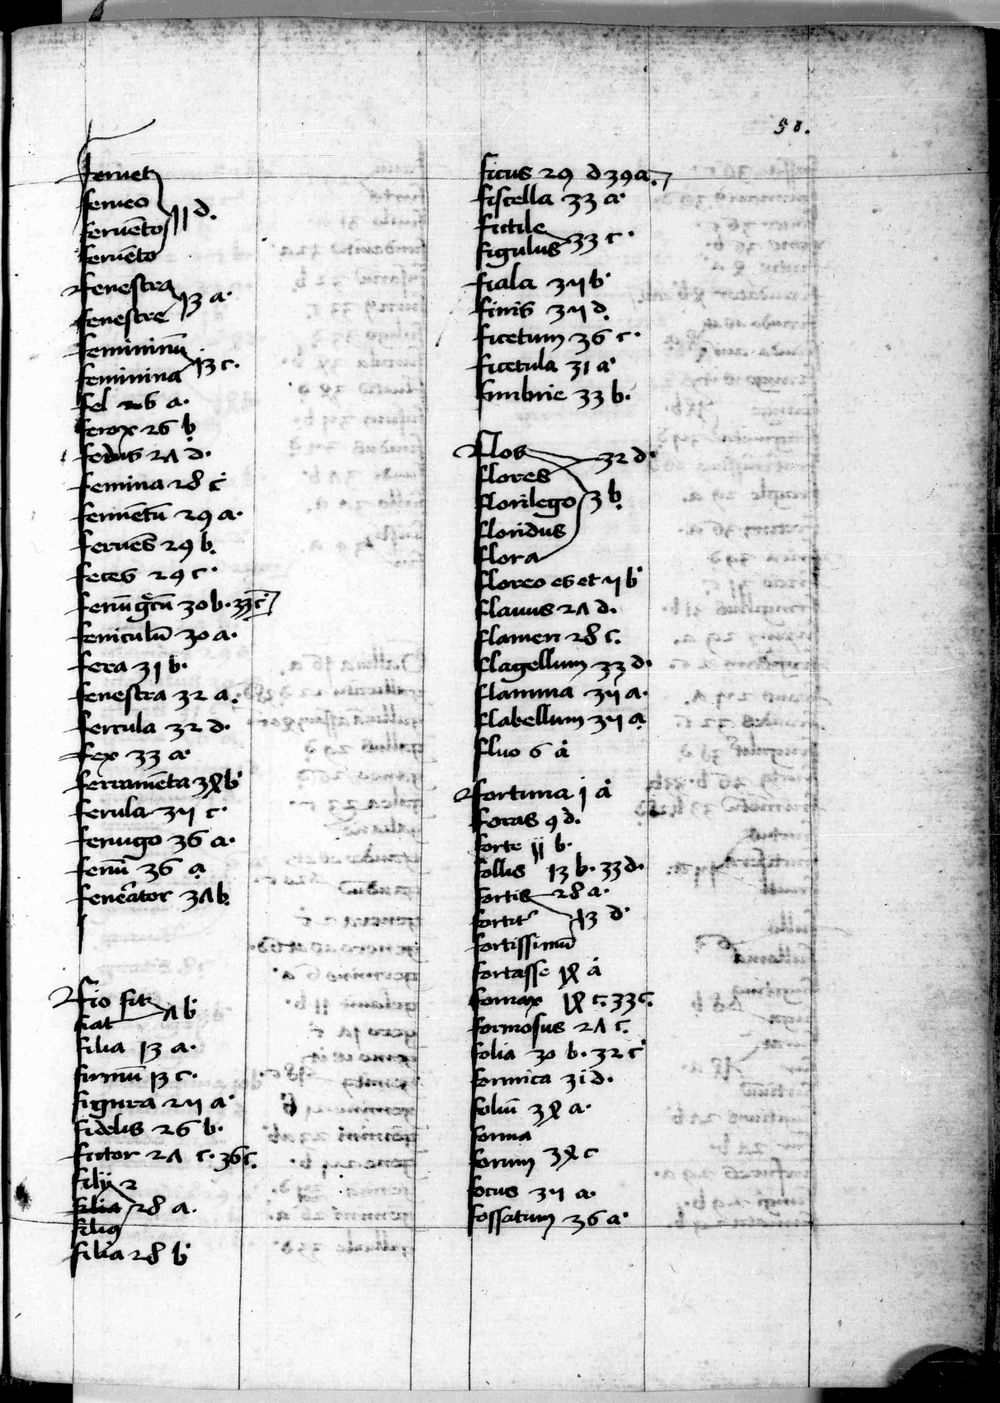 58.
feruet
ferueo
feruēto 11 d.
feruēto
fenestra 13 a.
fenestre
femininū 13 c.
feminina
fel 26 a.
ferox 26 b
fedus 27 d.
femina 28 c
fermētū 29 a.
feruēs 29 b.
feces 29 c.
fenū grecū 30 b. 33 c
feniculū 30 a.
fera 31 b.
fenestra 32 a.
fercula 32 d.
fex 33 a.
ferramēta b
ferula c
ferrugo 36 a.
fenū 36 a
fenerator 37 b.
fio fit 7 b
fiat
filia 13 a.
firmū 13 c.
figura a
fidelis 26 b.
fictor 27 c. 36 c.
filij
filia 28 a.
filius
filia 28 b
ficus 29 d 39 a.
fiscella 33 a.
fictile 33 c.
figulus
fiala b
finis d
ficetum 36 c.
ficetula 31 a.
fimbrie 33 b.
flos 32 d.
flores
florilego 3 b
floridus
flora
floreo es et b
flauus 27 d.
flamen 28 c.
flagellum 33 d.
flamma a.
flabellum a
fluo 6 a
fortuna 1 a
foras 9 d.
forte 11 b.
follis 13 b. 33 d.
fortis 28 a.
fortit 13 d
fortissimū
fortasse a
fornax c. 33 c.
formosus 27 c.
folia 30 b. 32 c
formica 31 d.
foliū a.
forma
forum c
focus a.
fossatum 36 a.